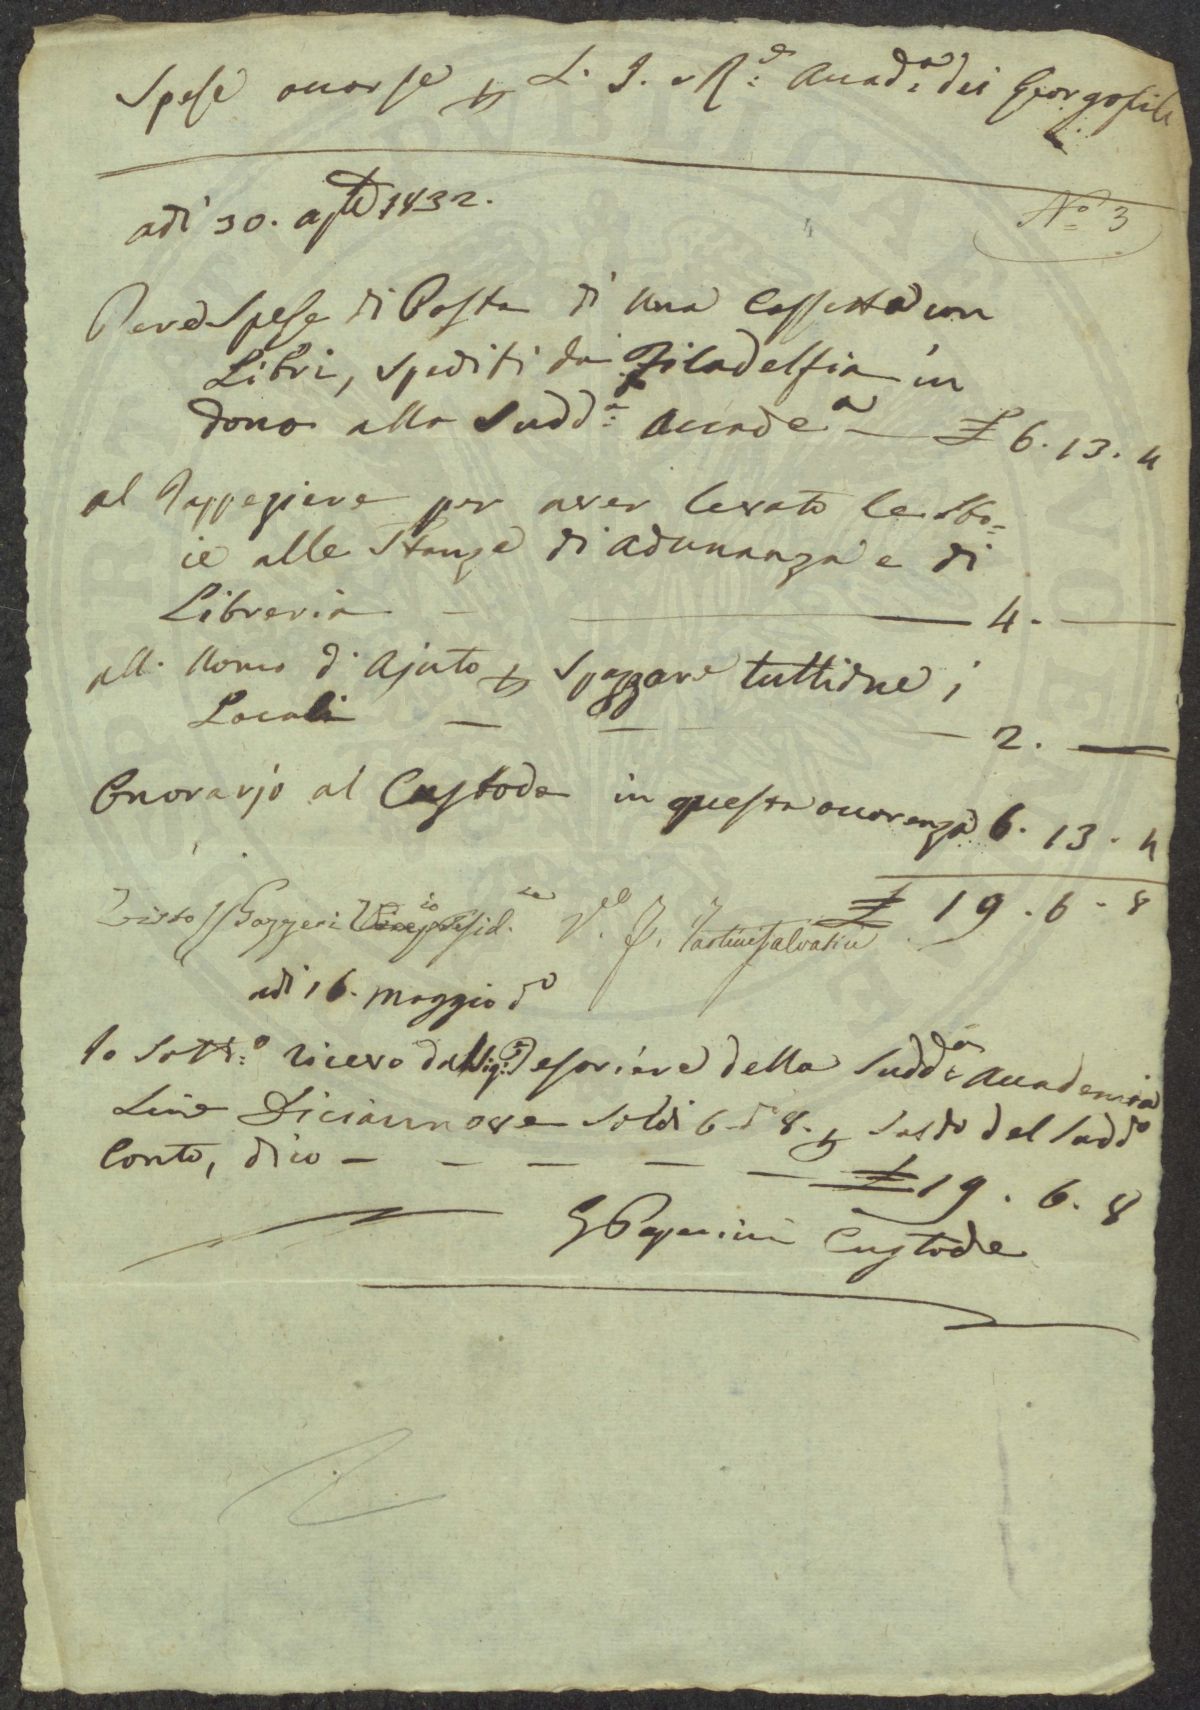 Spese occorse p L'I. e R.e Accad.a dei Georgofili
N.o 3
adi 30. ap.le 1832.
Per Spese di Posta di una Cassetta con
Libri, spediti da Filadelfia in
dono alla Sudd.a Accade.a — £ 6. 13. 4
al Tappeziere per aver levato le Sto=
ie alle Stanze di adunanza e di
Libreria — — 4. —
all. Uomo d'Ajuto p Spazzare tutti due i
Locali — — — 2. —
Onorarjo al Custode in questa occorenza 6. 13. 4
£ 19. 6. 8
Visto G Gazzeri Presid.te V. F. Tartini Salvatici
adi 16. Maggio d.o
Io Sott.o ricevo dal Sig.r Tesoriere della Sudd.a Accademia
Lire Diciannove Soldi 6 d 8. p Saldo del Sudd.o
Conto, dico — — — — — £ 19. 6. 8
Custode